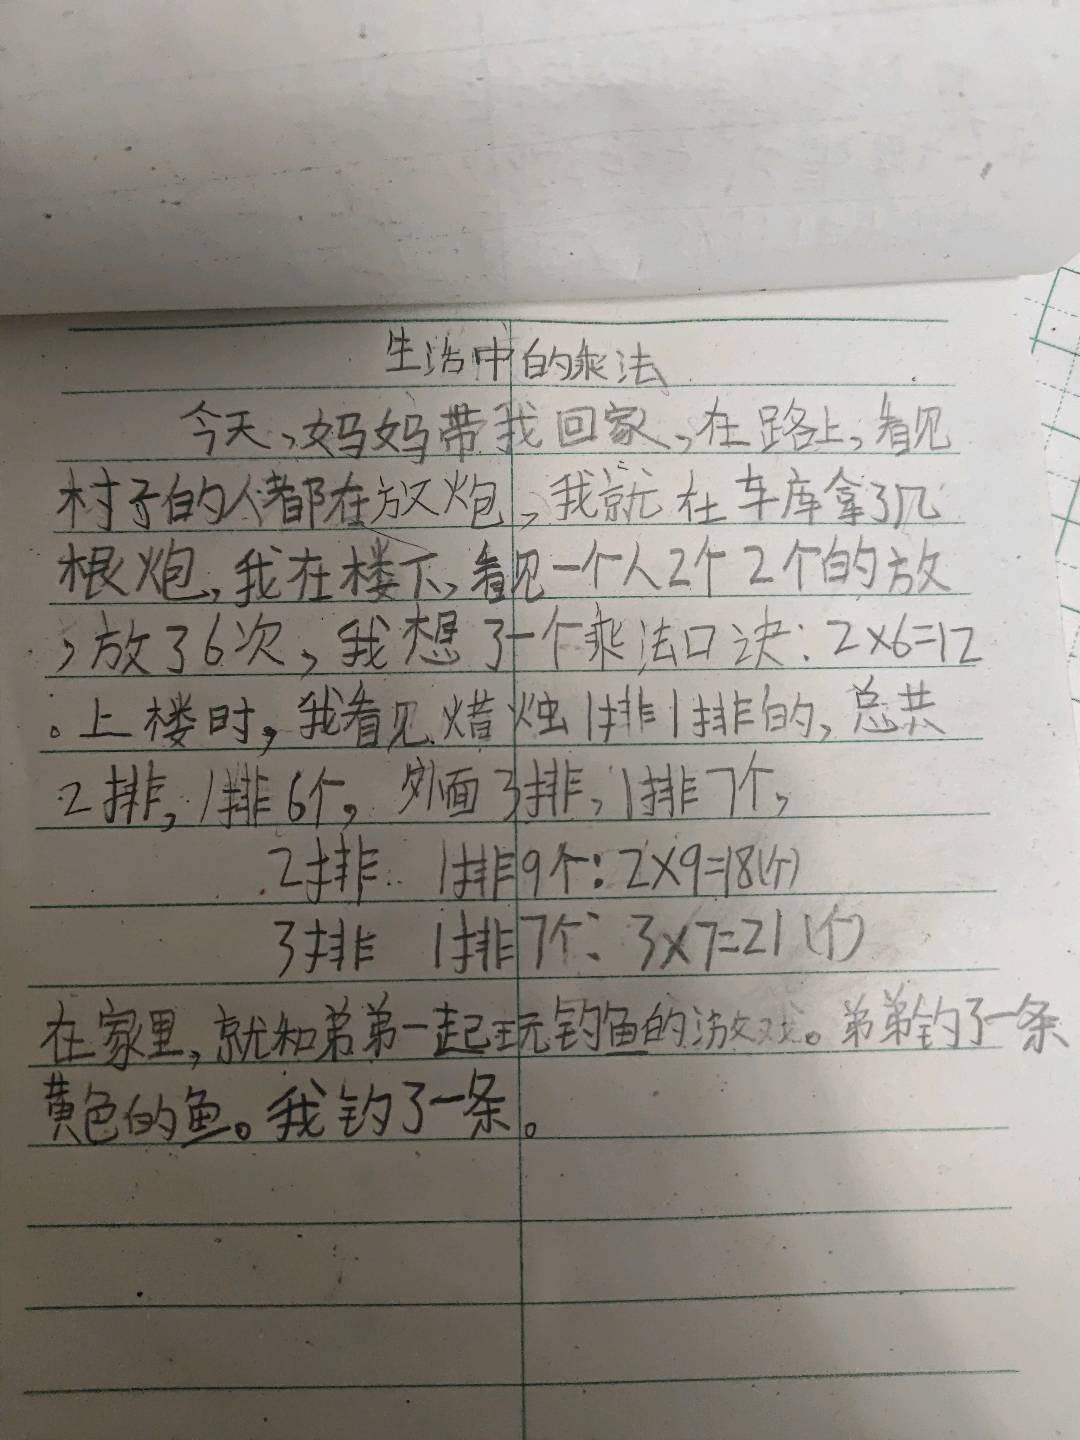 生活中的乘法
今天,妈妈带我回家,在路上,看见
村子的人都在放炮,我就在车库拿了几
根炮,我在楼下,看见一个人2个2个的放
,放了6次,我想了一个乘法口决:2×6=12
。上楼时,我看见蜡烛1排1排的,总共
2排,1排6个,外面3排,1排7个,
2排 1排9个:2×9=18(个)
3排 1排7个:3×7=21(个)
在家里,就和弟弟一起玩钓鱼的游戏。弟弟钓了一条
黄色的鱼。我钓了一条。